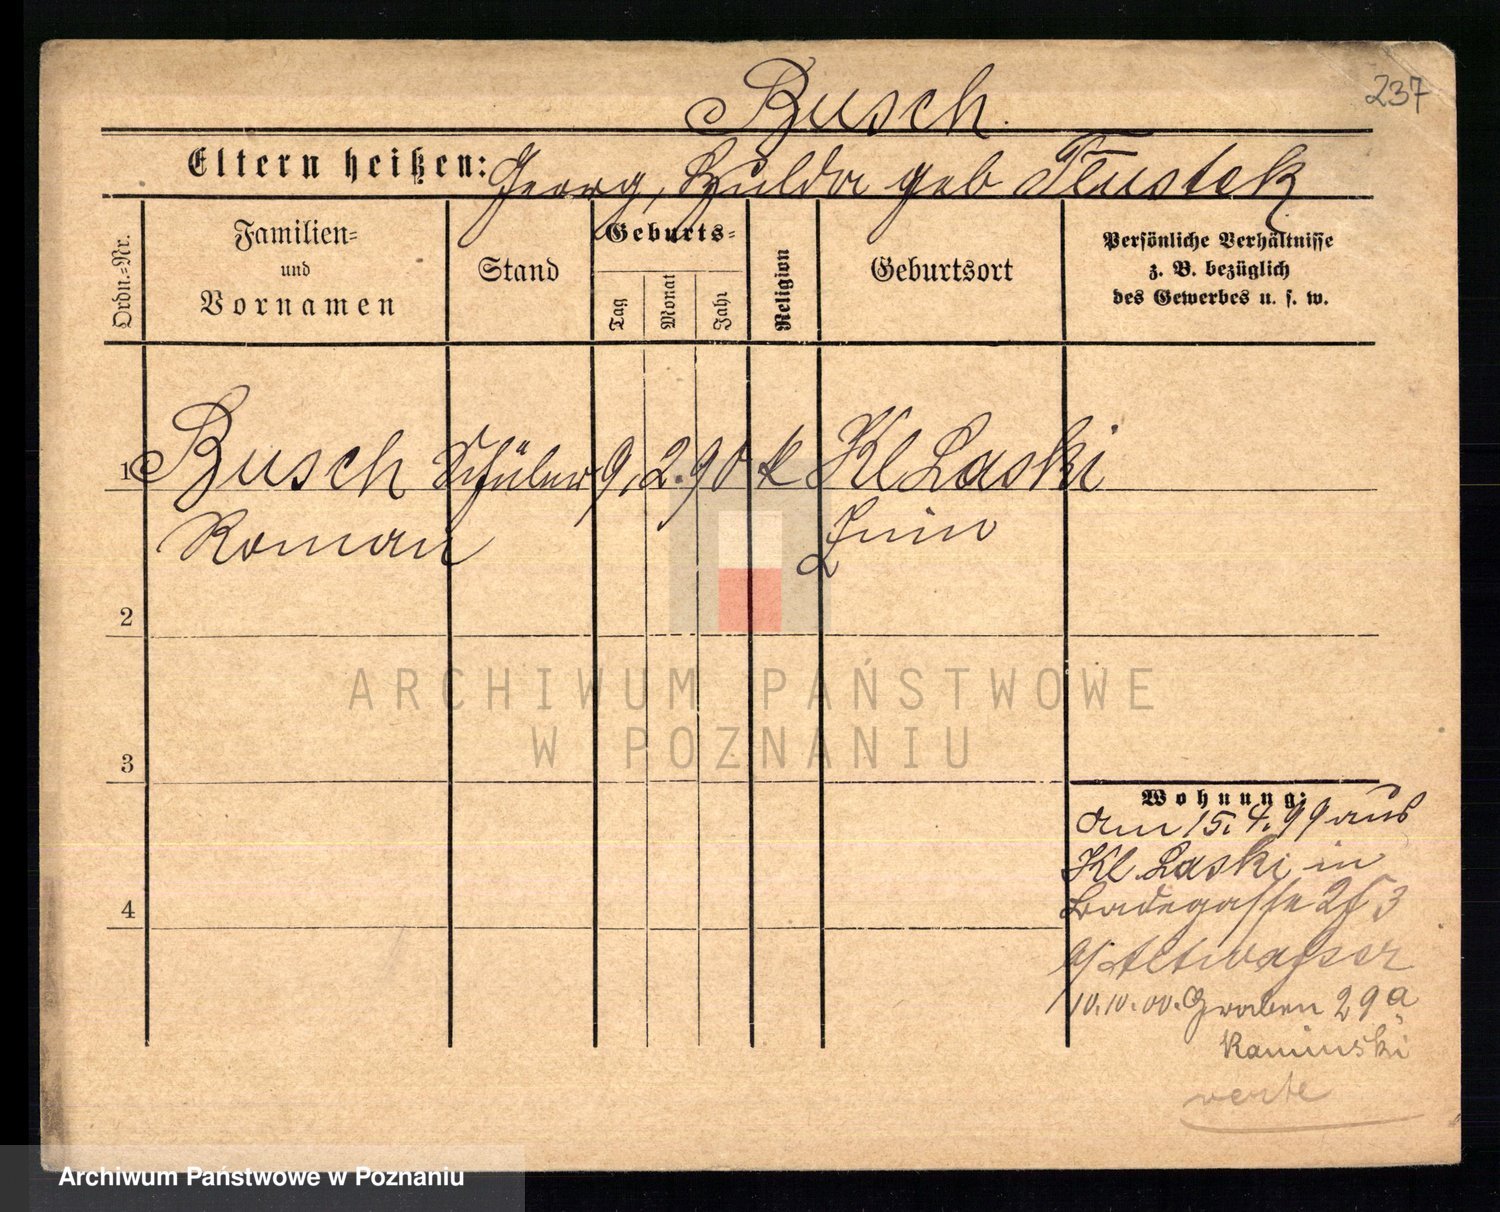 Busch.
237
Eltern heißen: Georg, Hulda geb Tlustek
Ordn.-Nr.
Familien-
und
Vornamen
Stand
Geburts-
Tag
Monat
Jahr
Religion
Geburtsort
Persönliche Verhältnisse
z. B. bezüglich
des Gewerbes u. s. w.
1 Busch Schüler 9. 2. 90 k Kl Laski
Roman Znin
2
3
4
ARCHIWUM PAŃSTWOWE
W POZNANIU
Wohnung:
Am 15. 4. 99 aus
Kl. Laski in
Badegasse 2 3
b/ Altwasser
10.10.00. Graben 29a
Kaminski
verte
Archiwum Państwowe w Poznaniu